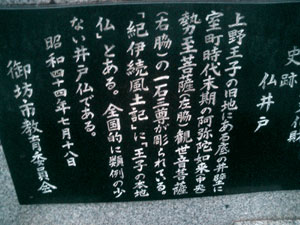 史跡
仏井戸
上野王子の旧地にある底の井壁に
室町時代末期の阿弥陀如来中央
勢至菩薩左脇観世音菩薩
(右脇)の一石三尊が彫られている。
「紀伊続風土記」に「王子の本地
仏」とある。全国的に類例の少
ない井戸仏である。
昭和四十四年七月十八日
御坊市教育委員会